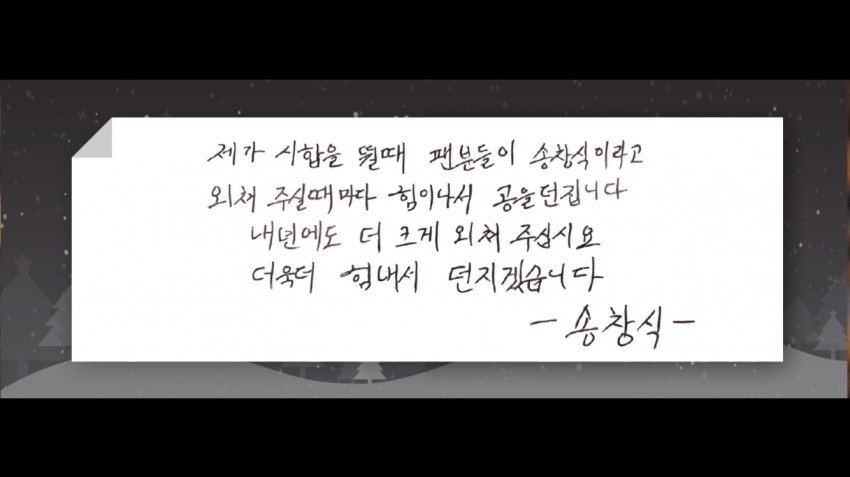 제가 시합을 뛸때 팬분들이 송창식이라고
외쳐 주실때마다 힘이나서 공을던집니다
내년에도 더 크게 외쳐 주십시요
더욱더 힘내서 던지겠습니다
- 송창식 -